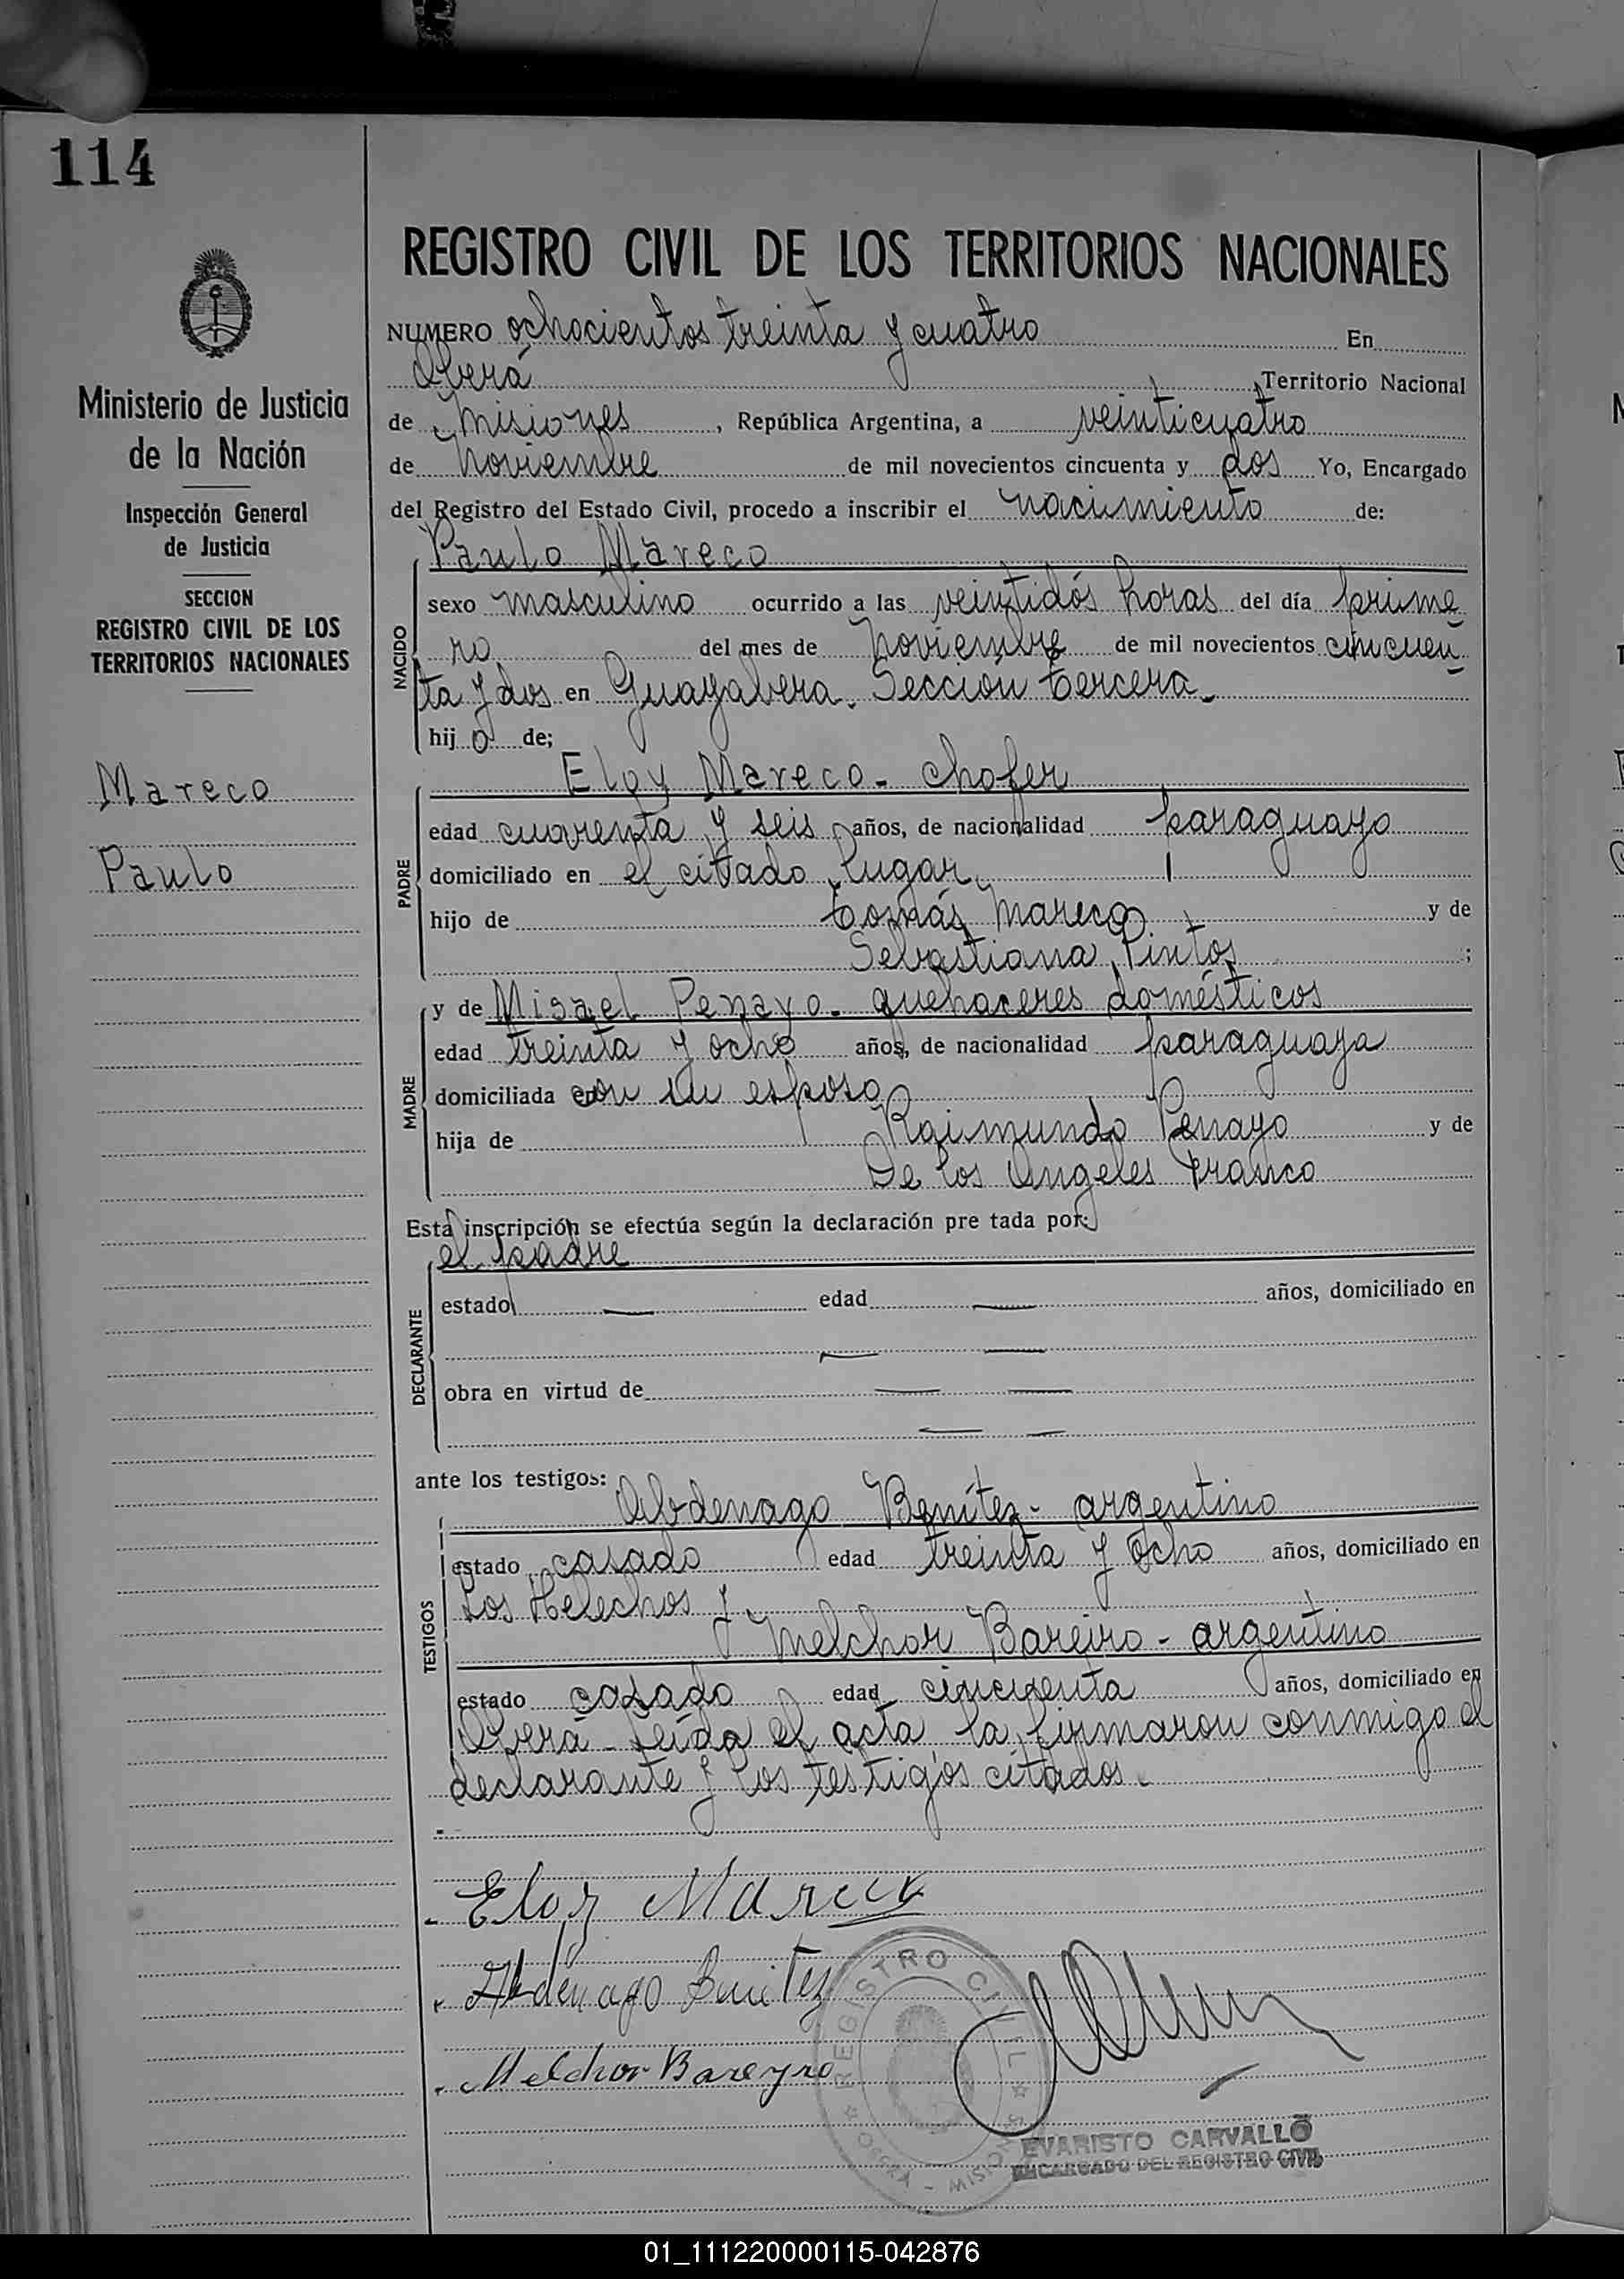 114
Ministerio de Justicia
de la Nación
Inspección General
de Justicia
SECCION
REGISTRO CIVIL DE LOS
TERRITORIOS NACIONALES
Mareco
Paulo
REGISTRO CIVIL DE LOS TERRITORIOS NACIONALES
NUMERO ochocientos treinta y cuatro En
Oberá Territorio Nacional
de Misiones, República Argentina, a veinticuatro
de noviembre de mil novecientos cincuenta y dos Yo, Encargado
del Registro del Estado Civil, procedo a inscribir el nacimiento de:
Paulo Mareco
NACIDO
sexo masculino ocurrido a las veintidós horas del día prime
ro del mes de noviembre de mil novecientos cincuen
ta y dos en Guayabera. Sección tercera.
hijo de;
Eloy Mareco - chofer
PADRE
edad cuarenta y seis años, de nacionalidad paraguayo
domiciliado en el citado lugar
hijo de Tomás Mareco y de
Sebastiana Pintos ;
MADRE
y de Misael Penayo - quehaceres domésticos
edad treinta y ocho años, de nacionalidad paraguaya
domiciliada con su esposo
hija de Raimundo Penayo y de
De los Angeles Franco
Esta inscripción se efectúa según la declaración pre tada por:
el padre
DECLARANTE
estado — edad — años, domiciliado en
— —
obra en virtud de — —
— —
ante los testigos:
Abdenago Benítez - argentino
TESTIGOS
estado casado edad treinta y ocho años, domiciliado en
Los Helechos y
Melchor Bareiro - argentino
estado casado edad cincuenta años, domiciliado en
Oberá - Leída el acta la firmaron conmigo el
declarante y los testigos citados.
Eloy Mareco
Abdenago Benitez
Melchor Bareyro
REGISTRO CIVIL
OBERA - MISIONES
EVARISTO CARVALLO
ENCARGADO DEL REGISTRO CIVIL
01_111220000115-042876